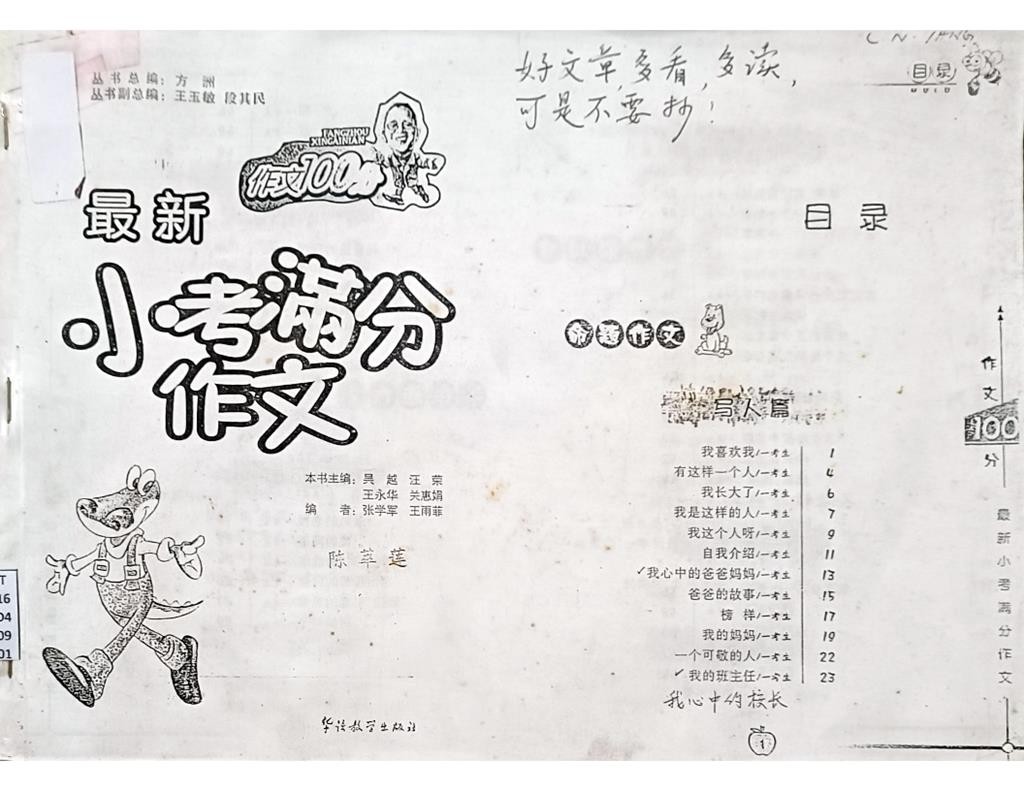 丛书总编：方 洲
丛书副总编：王玉敏 段其民
TANGZHOU
XINGAINIAN
作文100分
最新
小考满分
作文
本书主编：吴 越 汪 荣
王永华 关惠娟
编 者：张学军 王雨菲
陈苹莲
华语教学出版社
T
16
04
09
01
好文章,多看,多读,
可是不要抄!
目录
MULU
目 录
命题作文
写人篇
我喜欢我/一考生 1
有这样一个人/一考生 4
我长大了/一考生 6
我是这样的人/一考生 7
我这个人呀/一考生 9
自我介绍/一考生 11
✓我心中的爸爸妈妈/一考生 13
爸爸的故事/一考生 15
榜 样/一考生 17
我的妈妈/一考生 19
一个可敬的人/一考生 22
✓我的班主任/一考生 23
我心中的校长
1
作文100分
最新小考满分作文